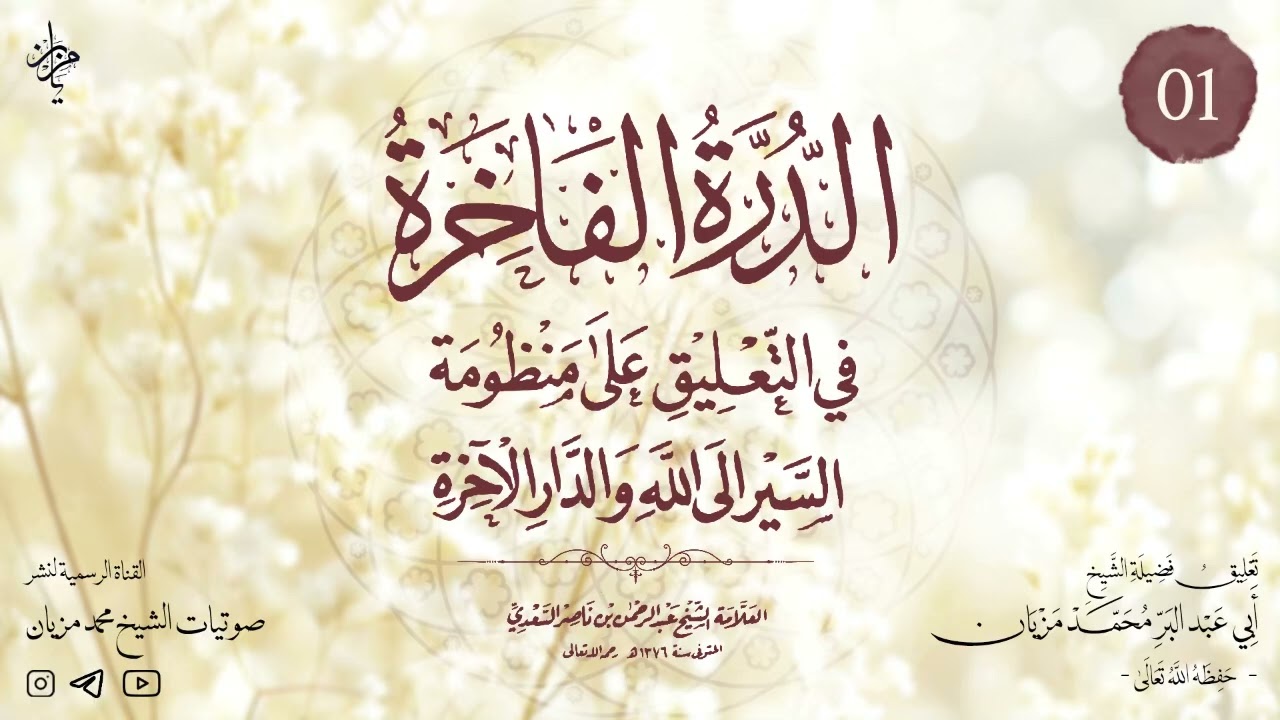 01
الدُّرَّةُ الفَاخِرَةُ
في التَّعْلِيقِ عَلَى مَنْظُومَة
السَّيْرِ الَى اللَّهِ وَالدَّارِ الْآخِرَةِ
العَلَّامَة الشَّيْخ عَبْد الرحْمٰن بْن نَاصِر السَّعْدِيِّ
المتوفى سنة ١٣٧٦هـ رحمه الله تعالى
تَعْلِيقُ فَضِيلَةِ الشَّيْخِ
أَبِي عَبْدِ البَرِّ مُحَمَّد مَزْيَان
- حَفِظَهُ اللَّهُ تَعَالَى -
القناة الرسمية لنشر
صوتيات الشيخ محمد مزيان